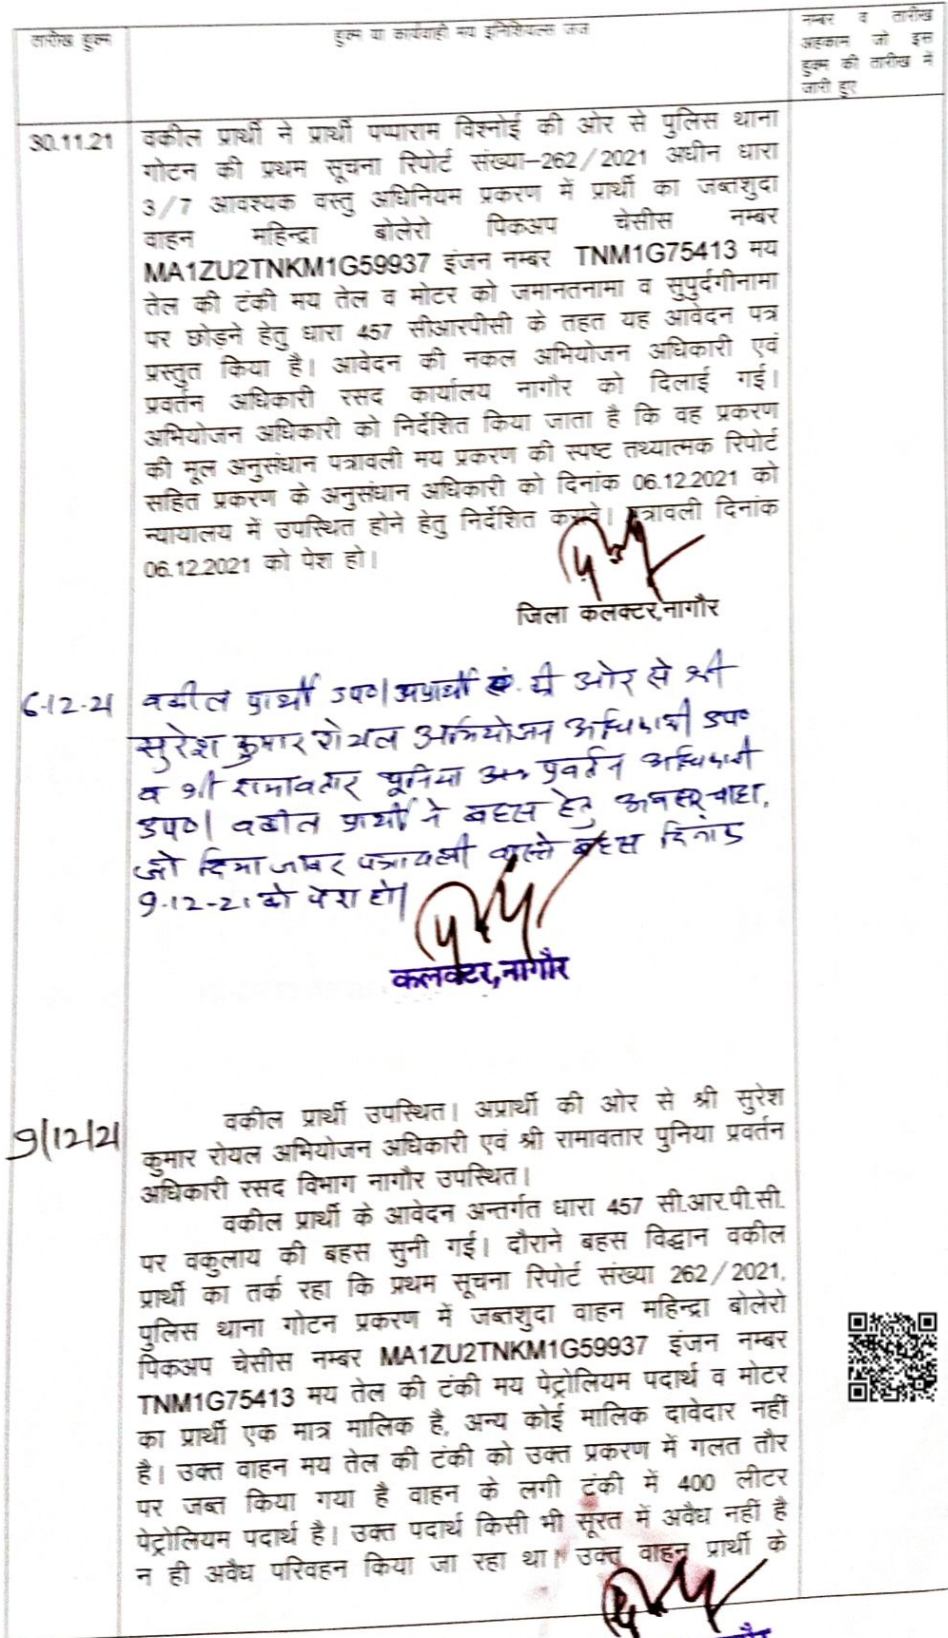 तारीख हुक्म
हुक्म या कार्यवाही मय इनिशियल्स जज
नम्बर व तारीख
अहकाम जो इस
हुक्म की तारीख में
जारी हुए
30.11.21
वकील प्रार्थी ने प्रार्थी पप्पाराम विश्नोई की ओर से पुलिस थाना
गोटन की प्रथम सूचना रिपोर्ट संख्या-262/2021 अधीन धारा
3/7 आवश्यक वस्तु अधिनियम प्रकरण में प्रार्थी का जब्तशुदा
वाहन महिन्द्रा बोलेरो पिकअप चेसीस नम्बर
MA1ZU2TNKM1G59937 इंजन नम्बर TNM1G75413 मय
तेल की टंकी मय तेल व मोटर को जमानतनामा व सुपुर्दगीनामा
पर छोड़ने हेतु धारा 457 सीआरपीसी के तहत यह आवेदन पत्र
प्रस्तुत किया है। आवेदन की नकल अभियोजन अधिकारी एवं
प्रवर्तन अधिकारी रसद कार्यालय नागौर को दिलाई गई।
अभियोजन अधिकारी को निर्देशित किया जाता है कि वह प्रकरण
की मूल अनुसंधान पत्रावली मय प्रकरण की स्पष्ट तथ्यात्मक रिपोर्ट
सहित प्रकरण के अनुसंधान अधिकारी को दिनांक 06.12.2021 को
न्यायालय में उपस्थित होने हेतु निर्देशित करावे। पत्रावली दिनांक
06.12.2021 को पेश हो।
जिला कलक्टर,नागौर
6-12-21
वकील प्रार्थी उप०। अप्रार्थी की ओर से श्री
सुरेश कुमार रोयल अभियोजन अधिकारी उप०
व श्री रामावतार पूनिया प्रवर्तन अधिकारी
उप०। वकील प्रार्थी ने बहस हेतु अवसर चाहा,
जो दिया जाकर पत्रावली वास्ते बहस दिनांक
9-12-21 को पेश हो।
कलक्टर,नागौर
9/12/21
वकील प्रार्थी उपस्थित। अप्रार्थी की ओर से श्री सुरेश
कुमार रोयल अभियोजन अधिकारी एवं श्री रामावतार पुनिया प्रवर्तन
अधिकारी रसद विभाग नागौर उपस्थित।
वकील प्रार्थी के आवेदन अन्तर्गत धारा 457 सी.आर.पी.सी.
पर वकुलाय की बहस सुनी गई। दौराने बहस विद्धान वकील
प्रार्थी का तर्क रहा कि प्रथम सूचना रिपोर्ट संख्या 262/2021,
पुलिस थाना गोटन प्रकरण में जब्तशुदा वाहन महिन्द्रा बोलेरो
पिकअप चेसीस नम्बर MA1ZU2TNKM1G59937 इंजन नम्बर
TNM1G75413 मय तेल की टंकी मय पेट्रोलियम पदार्थ व मोटर
का प्रार्थी एक मात्र मालिक है, अन्य कोई मालिक दावेदार नहीं
है। उक्त वाहन मय तेल की टंकी को उक्त प्रकरण में गलत तौर
पर जब्त किया गया है वाहन के लगी टंकी में 400 लीटर
पेट्रोलियम पदार्थ है। उक्त पदार्थ किसी भी सूरत में अवैध नहीं है
न ही अवैध परिवहन किया जा रहा था। उक्त वाहन प्रार्थी के